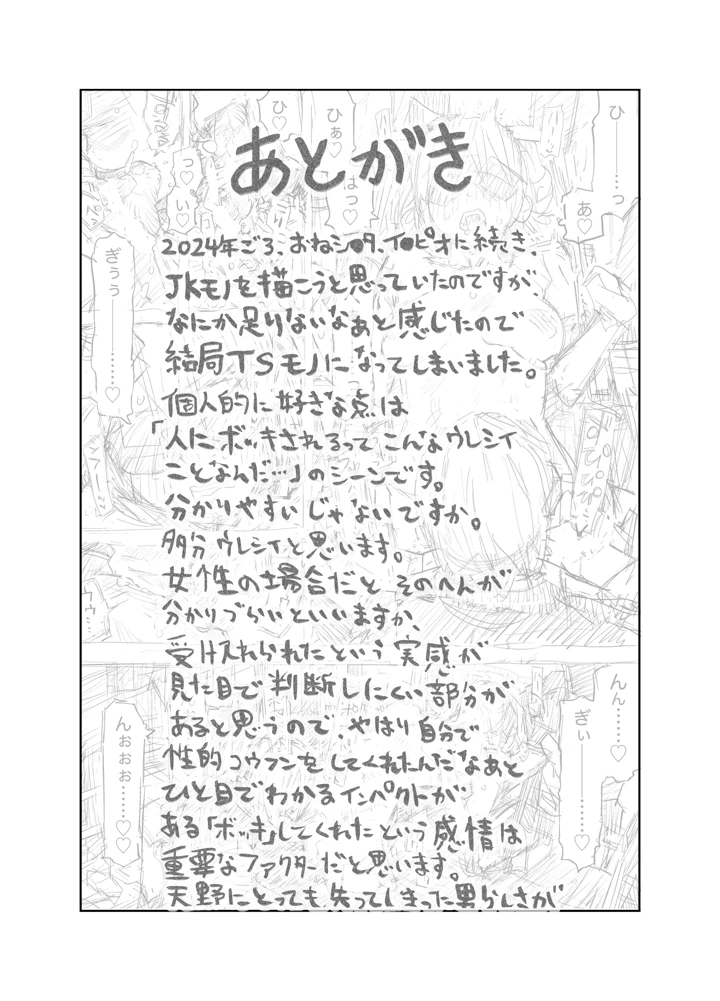 あとがき
2024年ごろ、おねシ●タ、イ●ピオに続き、
JKモノを描こうと思っていたのですが、
なにか足りないなあと感じたので
結局TSモノになってしまいました。
個人的に好きな点は
「人にボッキされるってこんなウレシイ
ことなんだ…」のシーンです。
分かりやすいじゃないですか。
多分ウレシイと思います。
女性の場合だとそのへんが
分かりづらいといいますか、
受け入れられたという実感が
見た目で判断しにくい部分が
あると思うので、やはり自分で
性的コウフンをしてくれたんだなあと
ひと目でわかるインパクトが
ある「ボッキ」してくれたという感情は
重要なファクターだと思います。
天野にとっても失ってしまった男らしさが
ひ————……っ
あ♡
ひ♡
ひぁ♡
はっ♡
っ♡い♡
ぎぅぅ…………♡
んん……♡
ぎぃ————……♡
んぉぉぉ……♡♡